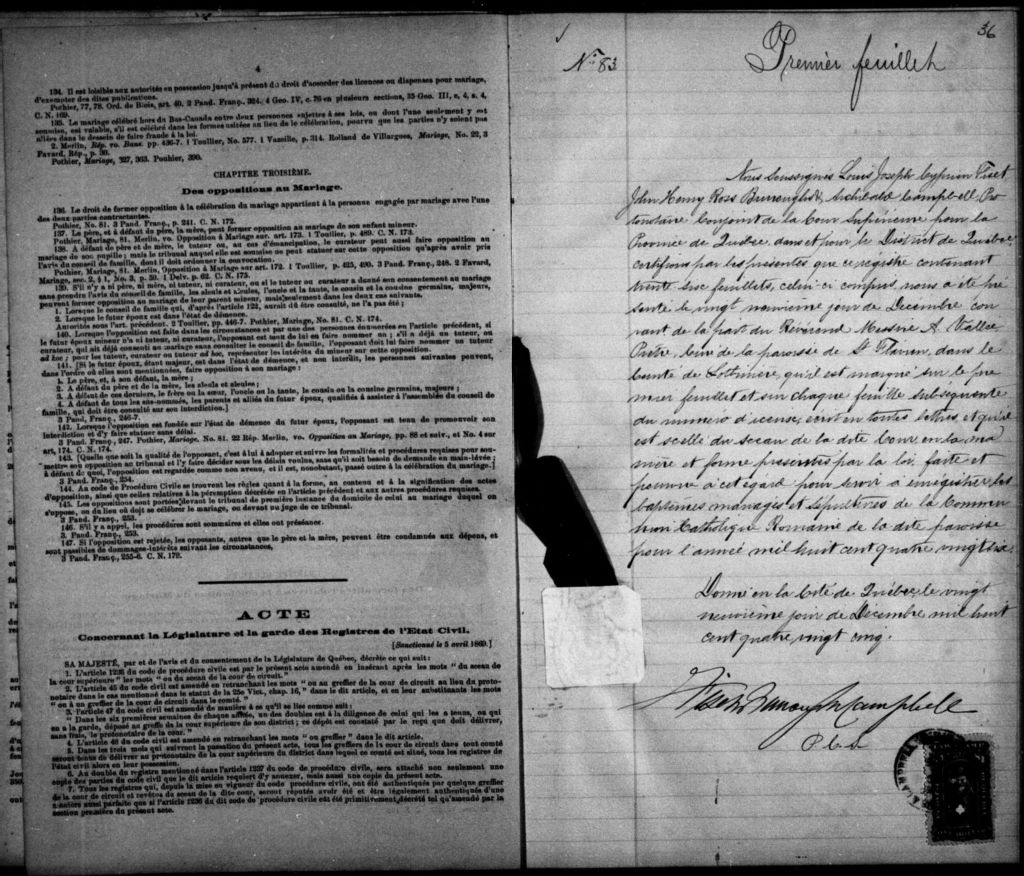 4
134. Il est loisible aux autorités en possession jusqu'à présent du droit d'accorder des licences ou dispenses pour mariage,
d'exempter des dites publications.
Pothier, 77, 78. Ord. de Blois, art. 40. 2 Pand. Franç. 324. 4 Geo. IV, c. 76 en plusieurs sections, 35 Geo. III, c. 4, s. 4,
C. N. 169.
135. Le mariage célébré hors du Bas-Canada entre deux personnes sujettes à ses lois, ou dont l'une seulement y est
soumise, est valable, s'il est célébré dans les formes usitées au lieu de la célébration, pourvu que les parties n'y soient pas
allées dans le dessein de faire fraude à la loi.
2. Merlin, Rép. vo. Bans. pp. 436-7. 1 Toullier, No. 577. 1 Vazeille, p. 314. Rolland de Villargues, Mariage, No. 22, 3
Favard, Rép., p. 30.
Pothier, Mariage, 327, 363. Pouhier, 390.
CHAPITRE TROISIÈME.
Des oppositions au Mariage.
136. Le droit de former opposition à la célébration du mariage appartient à la personne engagée par mariage avec l'une
des deux parties contractantes.
Pothier, No. 81. 3 Pand. Franç., p. 241. C. N. 172.
137. Le père, et à défaut du père, la mère, peut former opposition au mariage de son enfant mineur.
Pothier, Mariage, 81. Merlin, vo. Oppositions à Mariage sur. art. 173. 1 Toullier, p. 489. C. N. 174.
138. A défaut de père et de mère, le tuteur ou, au cas d'émancipation, le curateur peut aussi faire opposition au
mariage de son pupille; mais le tribunal auquel elle est soumise ne peut statuer sur cette opposition qu'après avoir pris
l'avis du conseil de famille, dont il doit ordonner la convocation.
Pothier, Mariage, 81. Merlin, Opposition à Mariage sur art. 172. 1 Toullier, p. 425, 490. 3 Pand. Franç., 248. 2 Favard,
Mariage, sec. 2, § 1, No. 3, p. 59. 1 Delv. p. 62. C. N. 175.
139. S'il n'y a ni père, ni mère, ni tuteur, ni curateur, ou si le tuteur ou curateur a donné son consentement au mariage
sans prendre l'avis du conseil de famille, les aïeuls et aïeules, l'oncle et la tante, le cousin et la cousine germains, majeurs,
peuvent former opposition au mariage de leur parent mineur, mais seulement dans les deux cas suivants.
1. Lorsque le conseil de famille qui, d'après l'article 122, aurait dû être consulté, ne l'a pas été;
2. Lorsque le futur époux est dans l'état de démence.
Autorités sous l'art. précédent. 2 Toullier, pp. 446-7. Pothier, Mariage, No. 81. C. N. 174.
140. Lorsque l'opposition est faite dans les circonstances et par une des personnes énumérées en l'article précédent, si
le futur époux mineur n'a ni tuteur, ni curateur, l'opposant est tenu de lui en faire nommer un; s'il a déjà un tuteur, ou
curateur, qui ait déjà consenti au mariage sans consulter le conseil de famille, l'opposant doit lui faire nommer un tuteur
ad hoc; pour les tuteur, curateur ou tuteur ad hoc, représenter les intérêts du mineur sur cette opposition.
141. [Si le futur époux, étant majeur, est dans l'état de démence, et non interdit, les personnes suivantes peuvent,
dans l'ordre où elles sont mentionnées, faire opposition à son mariage:
1. Le père, et, à son défaut, la mère;
2. A défaut du père et de la mère, les aïeuls et aïeules;
3. A défaut de ces derniers, le frère ou la sœur, l'oncle ou la tante, le cousin ou la cousine germains, majeurs;
4. A défaut de tous les sus-nommés, les parents et alliés du futur époux, qualifiés à assister à l'assemblée du conseil de
famille, qui doit être consulté sur son interdiction.]
3 Pand. Franç., 246-7.
142. Lorsque l'opposition est fondée sur l'état de démence du futur époux, l'opposant est tenu de promouvoir son
interdiction et d'y faire statuer sans délai.
3 Pand. Franç., 247. Pothier, Mariage, No. 81. 22 Rép. Merlin, vo. Opposition au Mariage, pp. 88 et suiv., et No. 4 sur
art. 174. C. N. 174.
143. [Quelle que soit la qualité de l'opposant, c'est à lui à adopter et suivre les formalités et procédures requises pour sou-
mettre son opposition au tribunal et l'y faire décider sous les délais voulus, sans qu'il soit besoin de demande en main-levée;
à défaut de quoi, l'opposition est regardée comme non avenue, et il est, nonobstant, passé outre à la célébration du mariage.]
3 Pand. Franç., 254.
144. Au code de Procédure Civile se trouvent les règles quant à la forme, au contenu et à la signification des actes
d'opposition, ainsi que celles relatives à la péremption décrétée en l'article précédent et aux autres procédures requises.
145. Les oppositions sont portées devant le tribunal de première instance du domicile de celui au mariage duquel on
s'oppose, ou du lieu où doit se célébrer le mariage, ou devant un juge de ce tribunal.
3 Pand. Franç., 253.
146. S'il y a appel, les procédures sont sommaires et elles ont préséance.
3. Pand. Franç., 253.
147. Si l'opposition est rejetée, les opposants, autres que le père et la mère, peuvent être condamnés aux dépens, et
sont passibles de dommages-intérêts suivant les circonstances.
3 Pand. Franç., 255-6. C. N. 179.
ACTE
Concernant la Législature et la garde des Registres de l'Etat Civil.
[Sanctionné le 5 avril 1869.]
SA MAJESTÉ, par et de l'avis et du consentement de la Législature de Québec, décrète ce qui suit:
1. L'article 1236 du code de procédure civile est par le présent acte amendé en insérant après les mots "du sceau de
la cour supérieure" les mots "ou du sceau de la cour de circuit."
2. L'article 45 du code civil est amendé en retranchant les mots "ou au greffier de la cour de circuit au lieu du proto-
notaire dans le cas mentionné dans le statut de la 25e Vict., chap. 16," dans le dit article, et en leur substituant les mots
"ou à un greffier de la cour de circuit dans le comté."
3. L'article 47 du code civil est amendé de manière à ce qu'il se lise comme suit:
"Dans les six premières semaines de chaque année, un des doubles est à la diligence de celui qui les a tenus, ou qui
en a la garde, déposé au greffe de la cour supérieure de son district; ce dépôt est constaté par le reçu que doit délivrer,
sans frais, le protonotaire de la cour."
4. L'article 48 du code civil est amendé en retranchant les mots "ou greffier" dans le dit article.
5. Dans les trois mois qui suivront la passation du présent acte, tous les greffiers de la cour de circuit dans tout comté
seront tenus de délivrer au protonotaire de la cour supérieure du district dans lequel ce comté est situé, tous les registres de
l'état civil alors en leur possession.
6. Au double du registre mentionné dans l'article 1237 du code de procédure civile, sera attaché non seulement une
copie des parties du code civil que le dit article requiert d'y annexer, mais aussi une copie du présent acte.
7. Tous les registres qui, depuis la mise en vigueur du code procédure civile, ont été authentiqués par quelque greffier
de la cour de circuit et revêtus du sceau de la dite cour, seront réputés avoir été et être légalement authentiqués d'une
manière aussi parfaite que si l'article 1236 du dit code de procédure civile eut été primitivement décrété tel qu'amendé par la
section première du présent acte.
36
No. 83
Premier feuillet
Nous soussignés Louis Joseph Cyprien Fiset
John Henry Ross Burroughs & Archibald Campbell, Pro
tonotaire Conjoint de la Cour Supérieure pour la
Province de Québec, dans et pour le District de Québec,
certifions par les présentes que ce registre contenant
trente six feuillets, celui-ci compris, nous a été pré
senté le vingt neuvième jour de Décembre cou
rant de la part du Révérend Messire A. Vallée
Prêtre, Curé de la paroisse de St Flavien, dans le
Comté de Lotbinière, qu'il est marqué sur le pre
mier feuillet et sur chaque feuille subséquente
du numéro d'icense, écrit en toutes lettres, et qu'il
est scellé du sceau de la dite Cour, en la ma
nière et forme prescrites par la loi faite et
pourvue à cet égard pour servir à enregistrer les
baptêmes mariages et sépultures de la Commu
nion Catholique Romaine de la dite paroisse
pour l'année mil huit cent quatre vingt six.
Donné en la Cité de Québec, le vingt
neuvième jour de Décembre mil huit
cent quatre vingt cinq.
Fiset Burroughs Campbell
P. C. S.